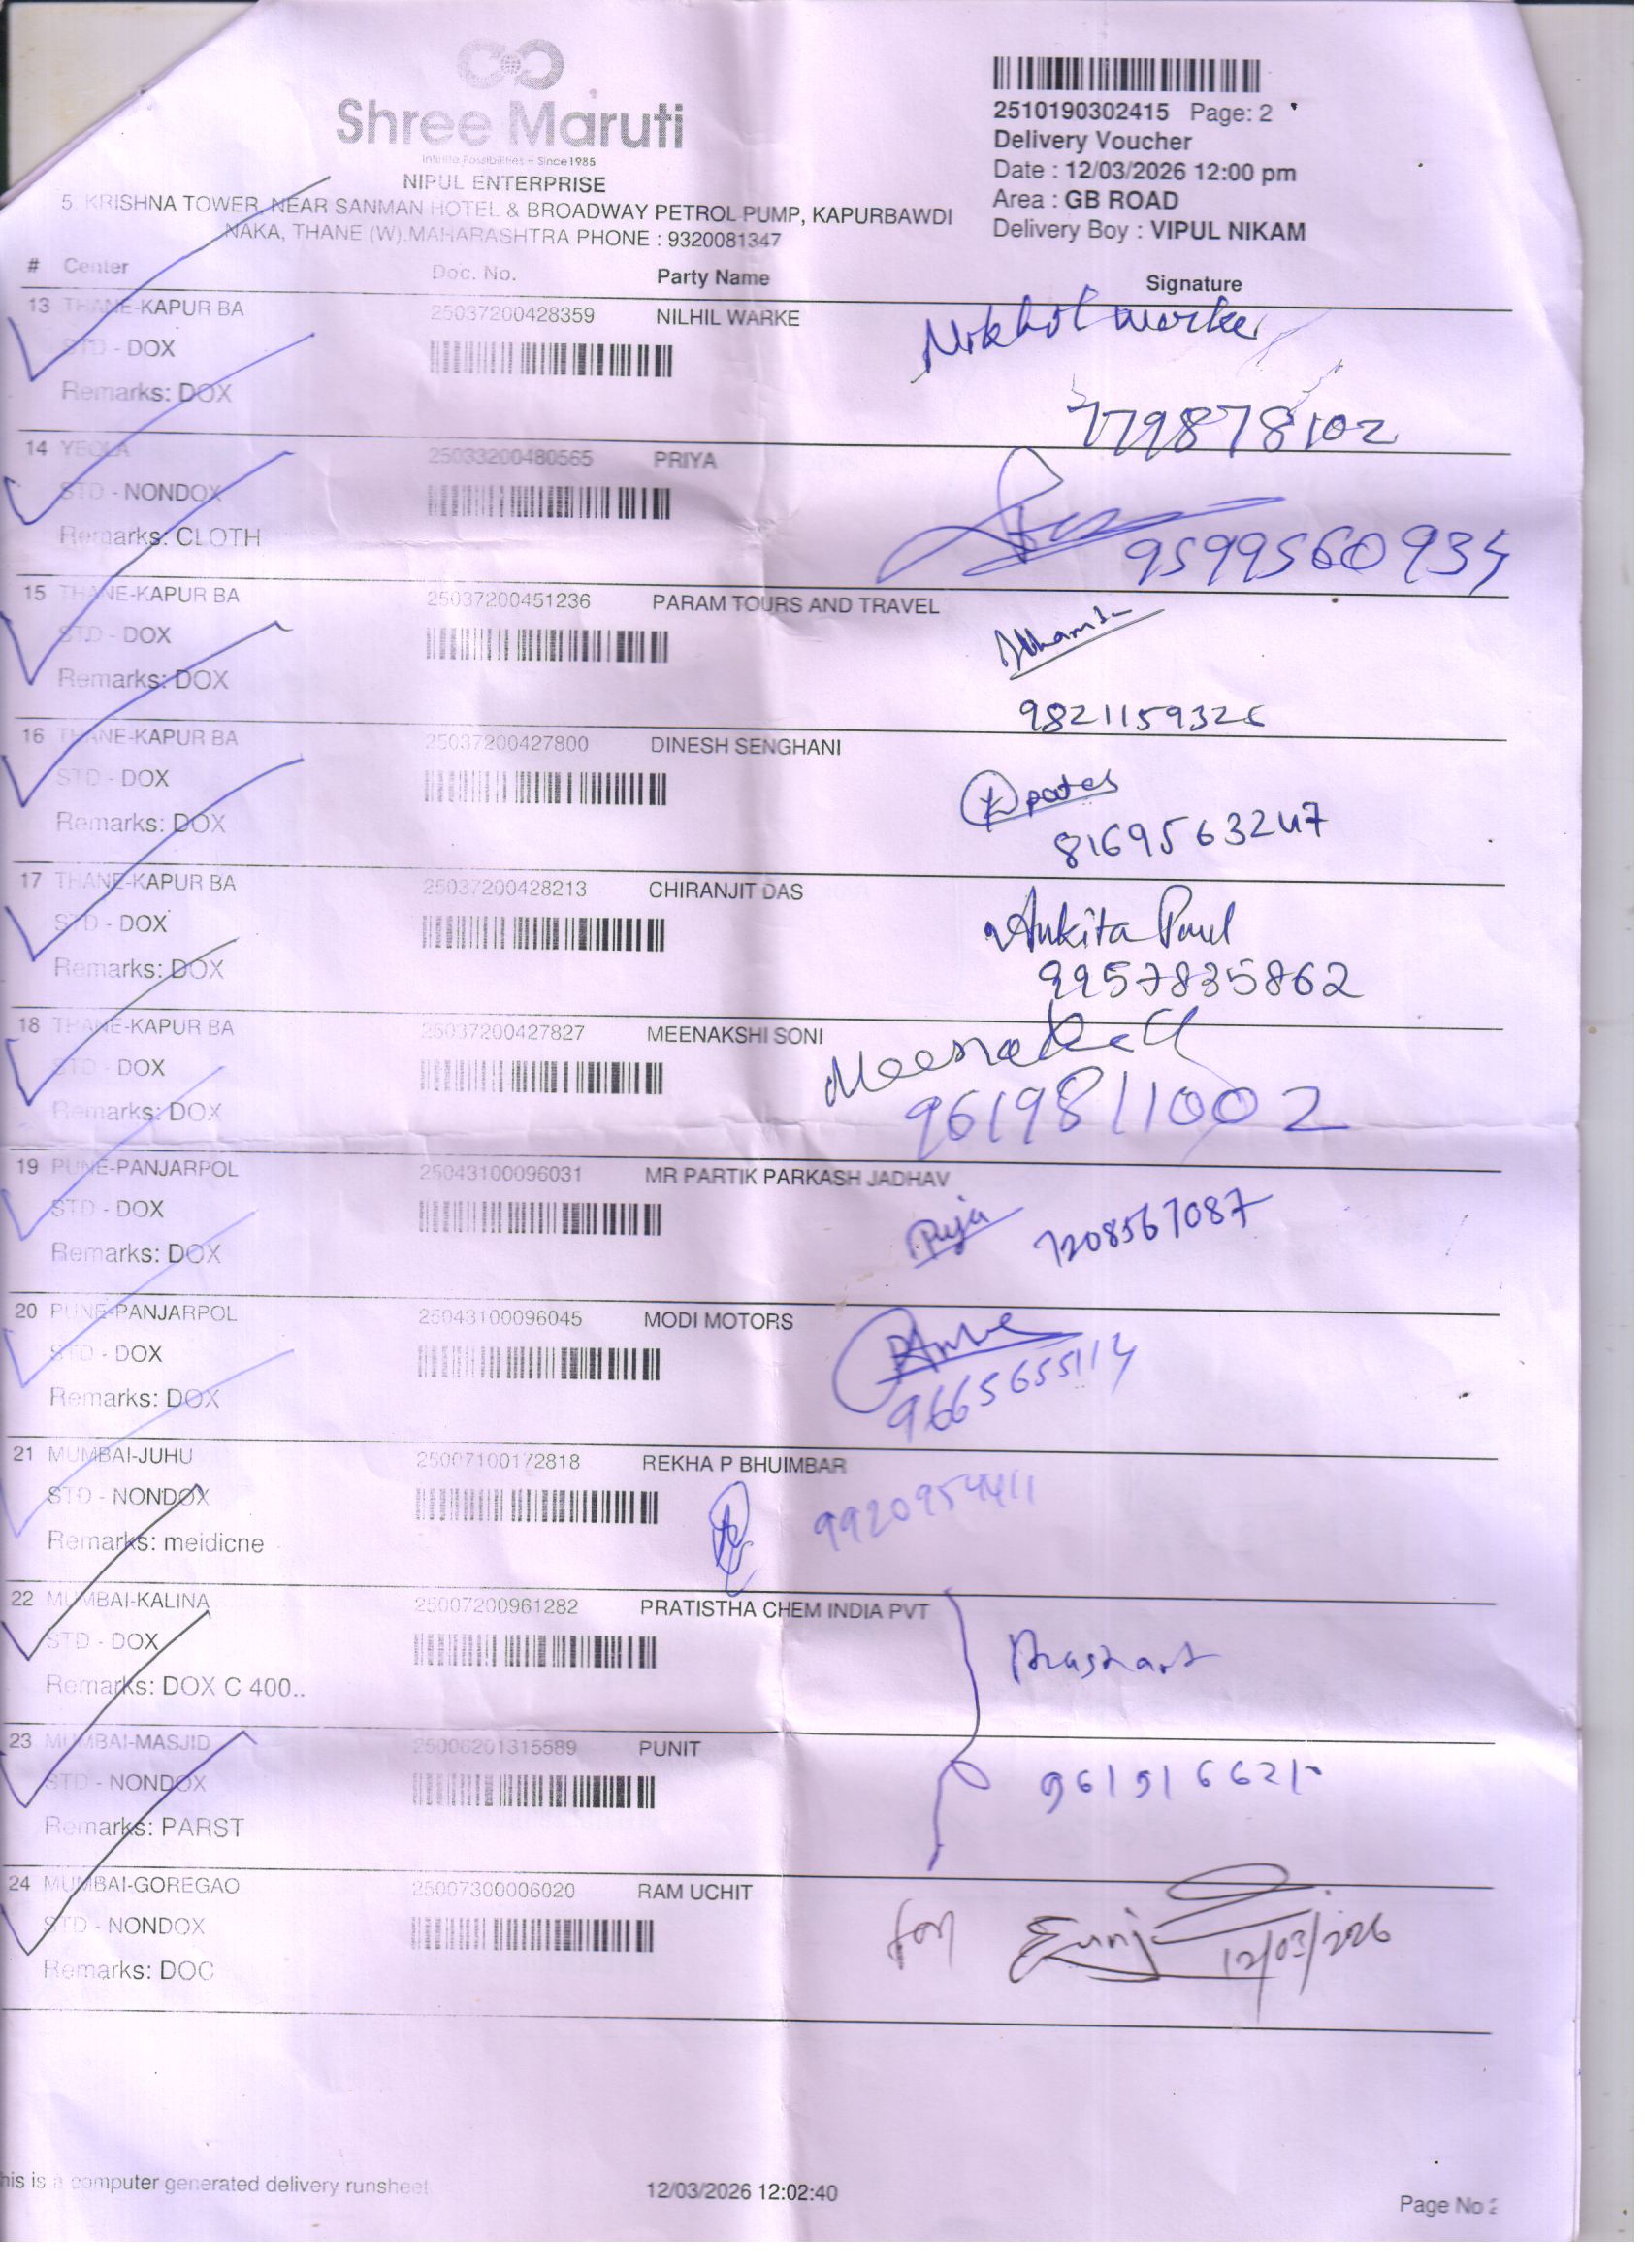 Shree Maruti
Infinite Possibilities - Since1985
NIPUL ENTERPRISE
5 KRISHNA TOWER, NEAR SANMAN HOTEL & BROADWAY PETROL PUMP, KAPURBAWDI
NAKA, THANE (W).MAHARASHTRA PHONE : 9320081347
2510190302415 Page: 2
Delivery Voucher
Date : 12/03/2026 12:00 pm
Area : GB ROAD
Delivery Boy : VIPUL NIKAM
# Center Doc. No. Party Name Signature
13 THANE-KAPUR BA 25037200428359 NILHIL WARKE
STD - DOX
Remarks: DOX
779878102
14 YEOLA 25033200480565 PRIYA
STD - NONDOX
Remarks: CLOTH
15 THANE-KAPUR BA 25037200451236 PARAM TOURS AND TRAVEL
STD - DOX
Remarks: DOX
9821159326
16 THANE-KAPUR BA 25037200427800 DINESH SENGHANI
STD - DOX
Remarks: DOX
8169563247
17 THANE-KAPUR BA 25037200428213 CHIRANJIT DAS
STD - DOX Ankita Paul
Remarks: DOX 9957835862
18 THANE-KAPUR BA 25037200427827 MEENAKSHI SONI
STD - DOX
Remarks: DOX 9619811002
19 PUNE-PANJARPOL 25043100096031 MR PARTIK PARKASH JADHAV
STD - DOX Puja 7208567087
Remarks: DOX
20 PUNE-PANJARPOL 25043100096045 MODI MOTORS
STD - DOX
Remarks: DOX 9665655114
21 MUMBAI-JUHU 25007100172818 REKHA P BHUIMBAR
STD - NONDOX 9920954411
Remarks: meidicne
22 MUMBAI-KALINA 25007200961282 PRATISTHA CHEM INDIA PVT
STD - DOX
Remarks: DOX C 400..
23 MUMBAI-MASJID 25006201315589 PUNIT
STD - NONDOX
Remarks: PARST
24 MUMBAI-GOREGAO 25007300006020 RAM UCHIT
STD - NONDOX for 12/03/2026
Remarks: DOC
his is a computer generated delivery runsheet 12/03/2026 12:02:40 Page No 2